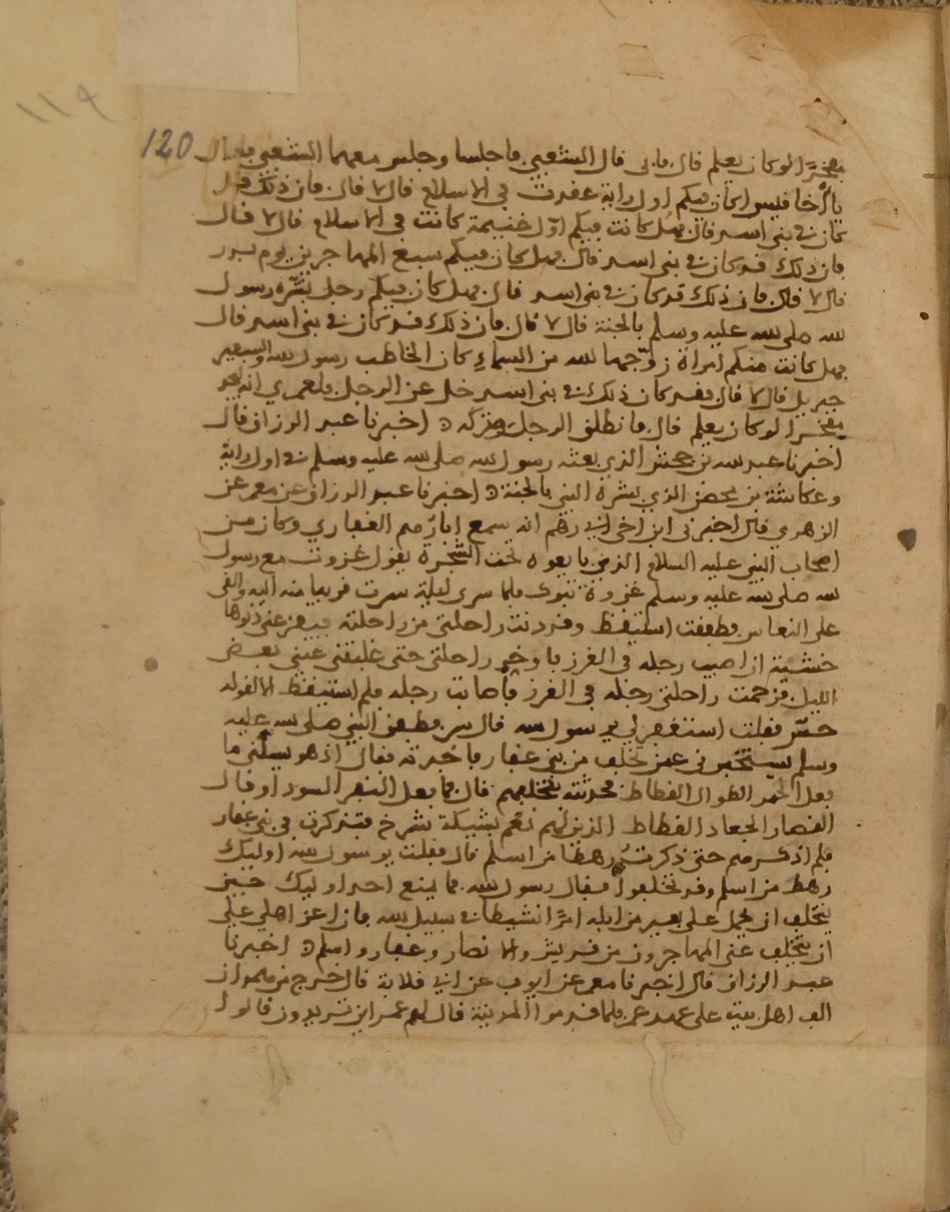 ١١٩
120
مفخرًا لو كان يعلم قال فابى قال الشعبي فاجلسا وجلس معهما الشعبي فقال
يا أخا قيس اكان فيكم اول راية عقدت في الاسلام قال لا قال فان ذلك قد
كان في بني اسد قال فهل كانت فيكم اوّل غنيمة كانت في الاسلام قال لا قال
فان ذلك قد كان في بني اسد قال فهل كان فيكم سبع المهاجرين يوم بدر
قال لا قال فان ذلك قد كان في بني اسد قال فهل كان فيكم رجل بشّره رسول
لله صلى لله عليه وسلم بالجنة قال لا قال فان ذلك قد كان في بني اسد قال
فهل كانت منكم امراة زوّجها لله من السماءِ كان الخاطب رسول لله والسفير
جبريل قال لا قال فقد كان ذلك في بني اسد خل عن الرجل فلعمري انه لعبر
مفخرا لو كان يعلم قال فانطلق الرجل وتركه ه اخبرنا عبد الرزاق قال
اخبرنا عبد لله بن جحش الذي بعثه رسول لله صلى لله عليه وسلم في اول راية
وعكاشة بن محصن الذي بشره النبي بالجنة ه اخبرنا عبد الرزاق عن معمر عن
الزهري قال اخبرني ابن اخي ابي رهم انه سمع ابا رهم الغفاري وكان من
اصحاب النبي عليه السلام الذين بايعوه تحت الشجرة يقول غزوت مع رسول
لله صلى لله عليه وسلم غزوة تبوك فلما سرى ليلة سرت قريبا منه اليه والقى
على النعاس فطفقت استيقظ وقد دنت راحلتي من راحلته فيفزعني دنوها
خشية ان اصيب رجله في الغرز فاوخر راحلتي حتى غلبتني عيني بعض
الليل فزحمت راحلتي رجله في الغرز فأصابت رجله فلم استيقظ الا لقوله
حسّ فقلت استغفر لي يرسول لله قال سر فطفق النبي صلى لله عليه
وسلم يستخبرني عمن تخلف من بني غفار فاخبرته فقال اذ هو يسلني ما
فعل الحمر الطوال القطاط فحدثته بتخلفهم قال فما فعل النفر السود او قال
القصار الجعاد القطاط الذين لهم نعم بشبكة شرخ فتذكرت في بني غفار
فلم اذكرهم حتى ذكرت رهطا من اسلم قال فقلت يرسول لله اوليك
رهط من اسلم وقد تخلفوا فقال رسول لله فما يمنع احد اوليك حين
يتخلف ان يحمل على بعير من ابله امرًا نشيطا في سبيل لله فان اعز اهلي علي
ان يتخلف عني المهاجرون من قريش والانصار وغفار واسلم ه اخبرنا
عبد الرزاق قال اخبرنا معمر عن ايوب عن ابي قلابة قال خرج
الف اهل بيت على عهد عمر فلما قدموا المدينة قال لهم عمر اين تريدون قالوا